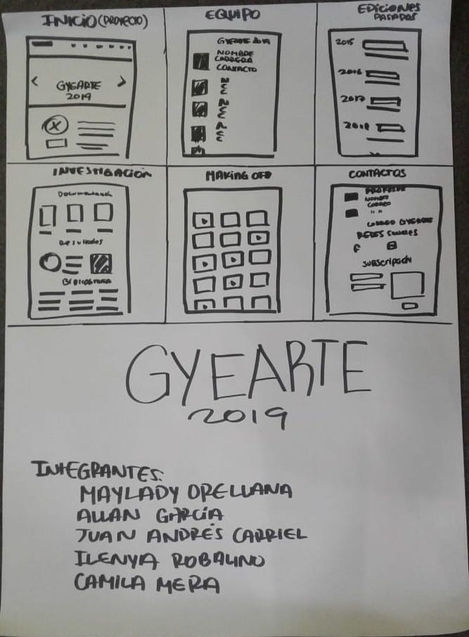 INICIO (PROYECTO)
GYEARTE
2019
EQUIPO
GYEARTE 2019
NOMBRE
CARRERA
CONTACTO
N
C
N
C
N
C
EDICIONES
PASADAS
2015
2016
2017
2018
INVESTIGACIÓN
RESULTADOS
MAKING OFF
CONTACTOS
NOMBRE
CORREO
" "
CORREO GYEARTE
REDES SOCIALES
F
SUBSCRIPCIÓN
GYEARTE
2019
INTEGRANTES:
MAYLADY ORELLANA
ALLAN GARCÍA
JUAN ANDRÉS CARRIEL
ILENYA ROBALINO
CAMILA MERA